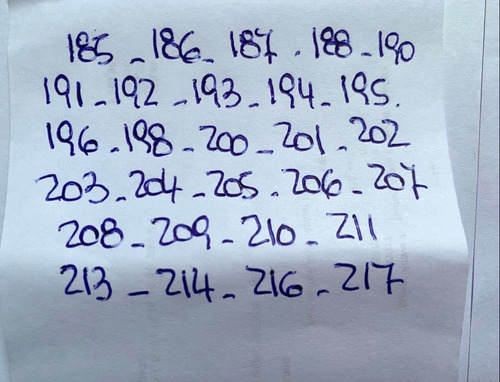 185 - 186 - 187 . 188 - 190
191 - 192 - 193 - 194 - 195.
196 - 198 - 200 - 201 - 202
203 - 204 - 205 . 206 - 207
208 - 209 - 210 - 211
213 - 214 - 216 - 217